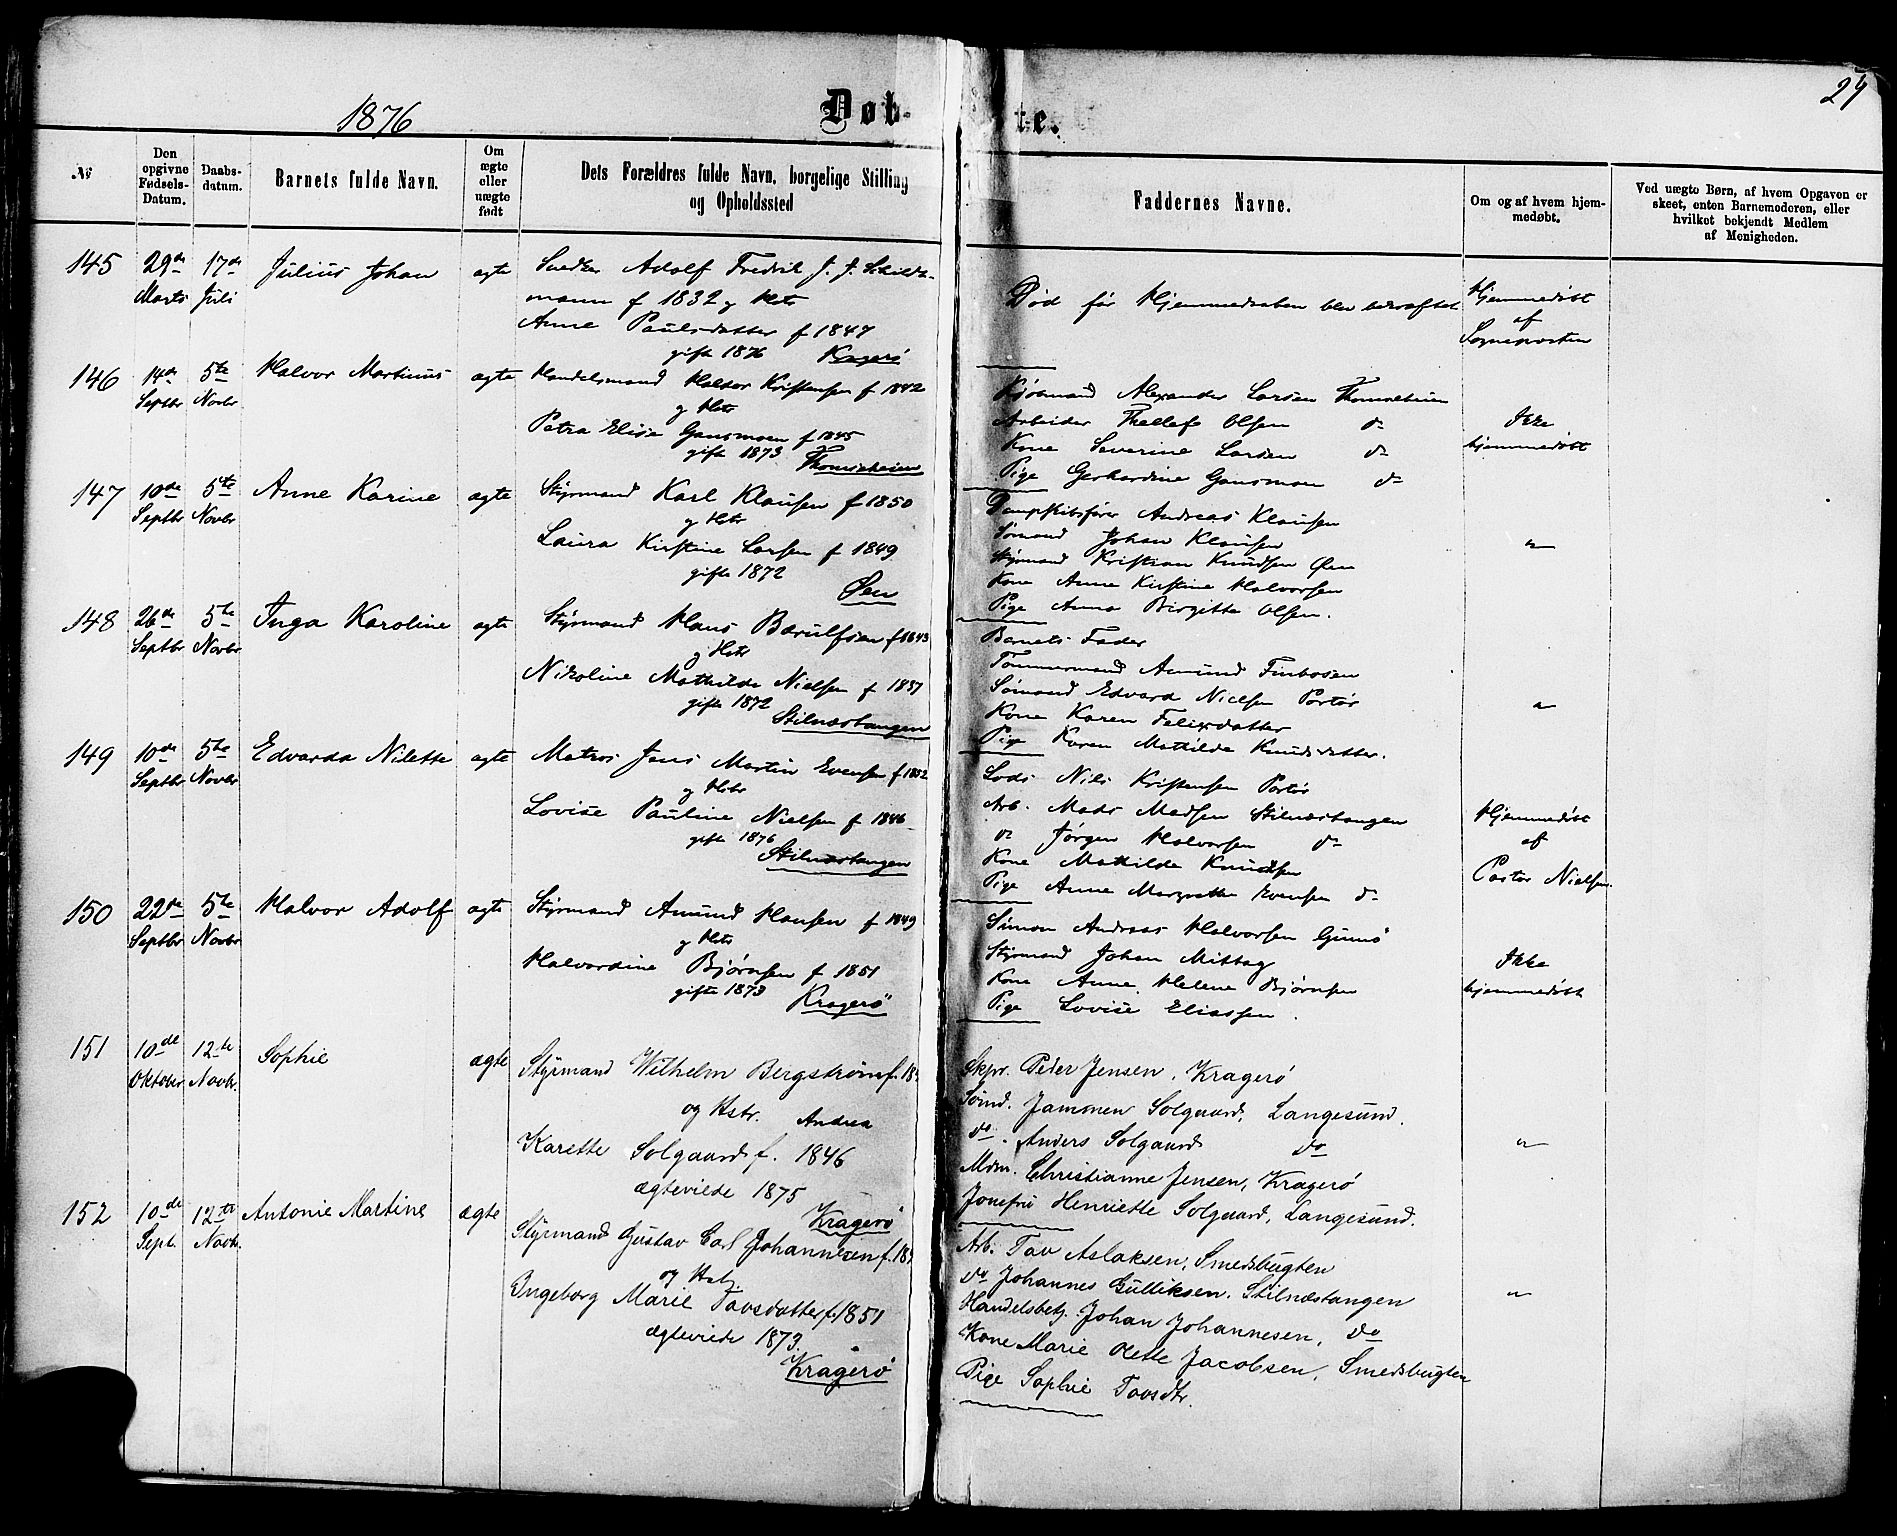 27
1876
Døbte.
№
Den opgivne Fødsels-Datum.
Daabs-datum.
Barnets fulde Navn.
Om ægte eller uægte født
Dets Forældres fulde Navn, borgelige Stilling og Opholdssted
Faddernes Navne.
Om og af hvem hjem-medøbt.
Ved uægte Børn, af hvem Opgaven er skeet, enten Barnemoderen, eller hvilket bekjendt Medlem af Menigheden.
145 29de Marts 17de Juli Julius Johan ægte
Snedker Adolf Fredrik J. J. Schildt-
mann f 1832 og Hstr
Anne Paulsdatter f 1847
gifte 1876 Kragerø
Død før Hjemmedaaben blev bekræftet
Hjemmedøbt
af
Sognepresten
146 14de Septbr 5te Novbr Halvor Martinus ægte
Handelsmand Halvor Kristensen f 1842
og Hstr
Petra Elise Gansmoen f 1845
gifte 1873 Thomesheien
Kjøbmand Alexander Larsen Thomesheien
Arbeider Thellef Olsen do
Kone Severine Larsen do
Pige Gerhardine Gansmoen do
Ikke
hjemmedøbt
147 10de Septbr 5te Novbr Anne Karine ægte
Styrmand Karl Klausen f 1850
og Hstr
Laura Kirstine Larsen f 1849
gifte 1872
Øen
Dampskibsfører Andreas Klausen
Sømand Johan Klausen
Styrmand Kristian Knudsen Øen
Kone Anne Kirstine Halvorsen
Pige Anna Birgitte Olsen.
"
148 26de Septbr 5te Novbr Inga Karoline ægte
Styrmand Hans Bærulfsen f 1843
og Hstr
Nikoline Mathilde Nielsen f 1857
gifte 1872
Stilnæstangen
Barnets Fader
Tømmermand Amund Finbosen
Sømand Edvard Nielsen Portør
Kone Karen Felixdatter
Pige Karen Mathilde Knudsdatter.
"
149 10de Septbr 5te Novbr Edvarda Nilette ægte
Matros Jens Martin Evensen f 1852
og Hstr
Lovise Pauline Nielsen f 1846
gifte 1876
Stilnæstangen
Lods Nils Kristensen Portør
Arb. Mads Madsen Stilnæstangen
do Jørgen Halvorsen do
Kone Mathilde Knudsen
Pige Anne Margrethe Evensen do
Hjemmedøbt
af
Pastor Nielsen.
150 22de Septbr 5te Novbr Halvor Adolf ægte
Styrmand Amund Hansen f 1849
og Hstr
Halvordine Bjørnsen f 1851
gifte 1873
Kragerø
Simon Andreas Halvorsen Gumø
Styrmand Johan Mittag
Kone Anne Helene Bjørnsen
Pige Lovise Eliassen.
Ikke
hjemmedøbt
151 10de Oktober 12te Novbr. Sophie ægte
Styrmand Wilhelm Bergstrøm f. 18
og Hstr. Andrea
Karette Solgaard f. 1846
ægteviede 1875
Kragerø
Skpr. Peder Jensen, Kragerø
Sømd. Jammen Solgaard, Langesund.
do. Anders Solgaard do
Mdm. Christianne Jensen, Kragerø
Jomfru Henriette Solgaard, Langesund.
"
152 10de Sept. 12te Novb. Antonie Martine ægte
Styrmand Gustav Carl Johannesen f. 18
og Hst.
Ingeborg Marie Tovsdatter f. 1851
ægteviede 1873.
Kragerø
Arb. Tov Aslaksen, Smedsbugten
do Johannes Gulliksen, Stilnæstangen
Handelsbetj. Johan Johannesen, do
Kone Marie Olette Jacobsen, Smedsbugten
Pige Sophie Tovsdtr.
"